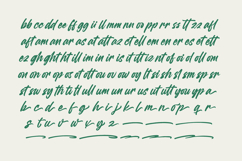 bb cc dd ee ff gg ii ll mm nn oo pp rr ss tt zz afl
aft am an ar as at att az ct ell em en er es et ett
ez gh ght ht ill im in ir is it itt iz nt of oi ol oll om
on on or op os ot ott ou ov ow oy lt si sh sl sm sp sr
st sw sy th ti tl ull um un ur us ut utt yi ys a-
b- c- d- e- f- h- i- k- l- m- n- o- p- q- r-
s- t- u- v- w- x- y- z-